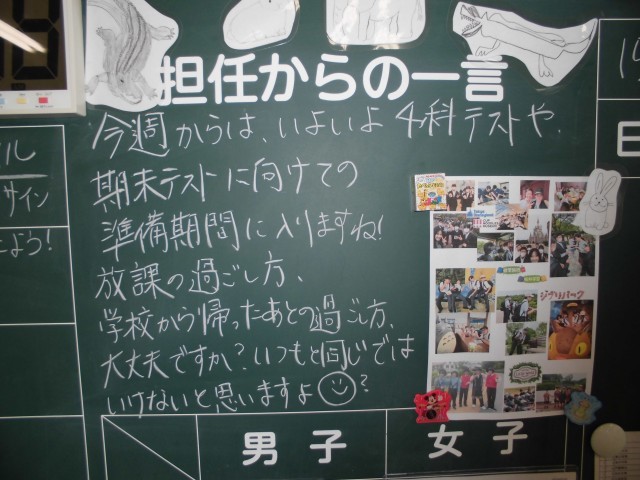 担任からの一言
今週からは、いよいよ4科テストや、
期末テストに向けての
準備期間に入りますね!
放課の過ごし方、
学校から帰ったあとの過ごし方、
大丈夫ですか?いつもと同じでは
いけないと思いますよ☺?
男子
女子
ル
サイン
よう!
ジブリパーク
日